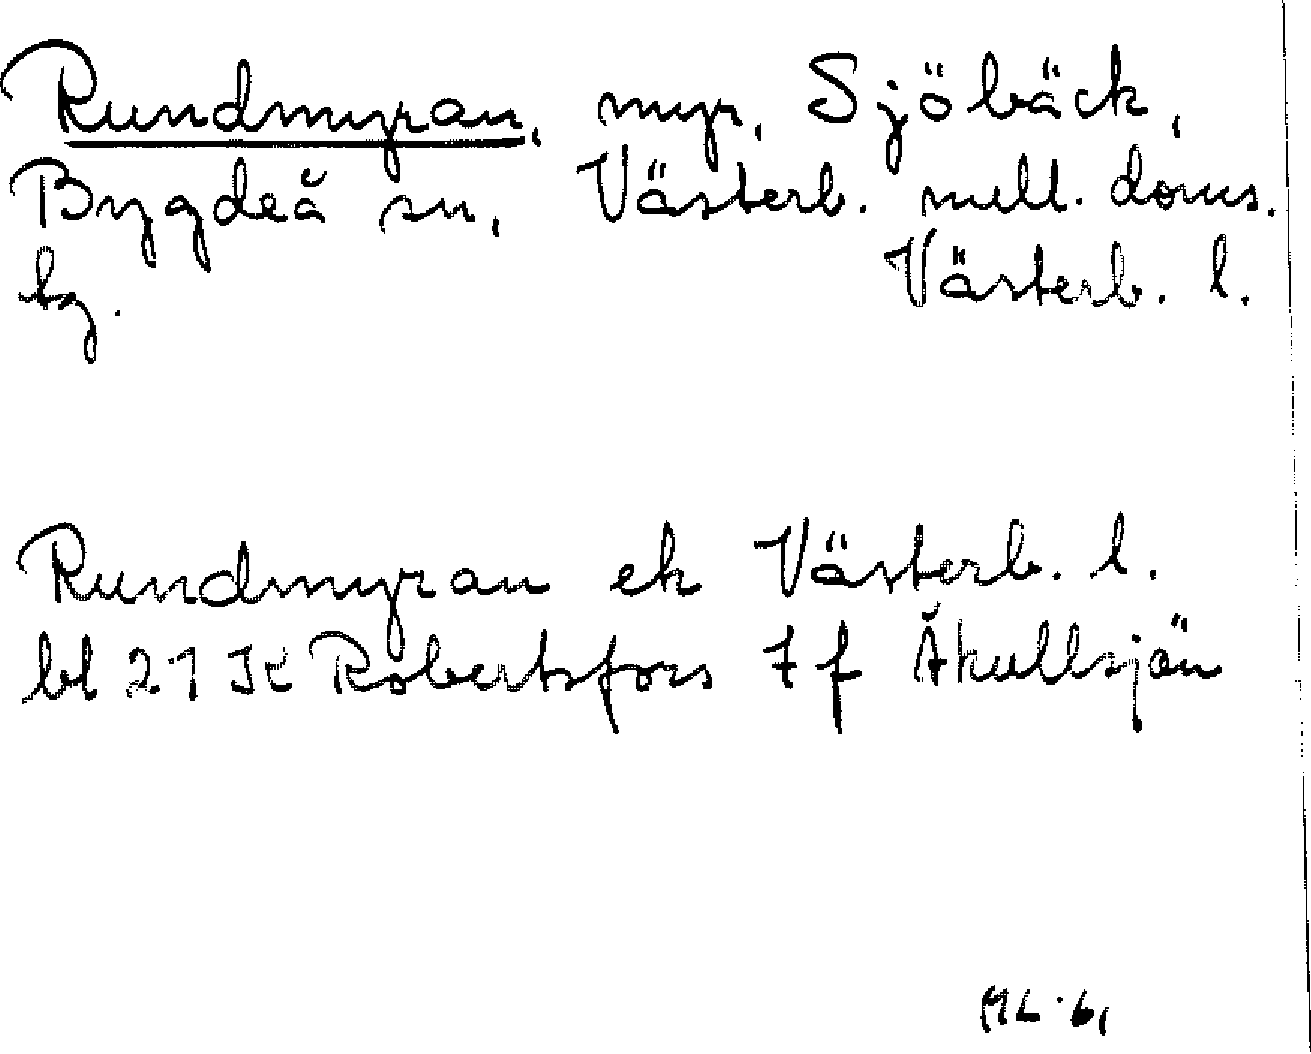 Rundmyran, myr, Sjöbäck,
Bygdeå sn, Västerb. mell. doms.
tg. Västerb. l.
Rundmyran ek Västerb. l.
bl 21 K Robertsfors 7 f Åkullsjön